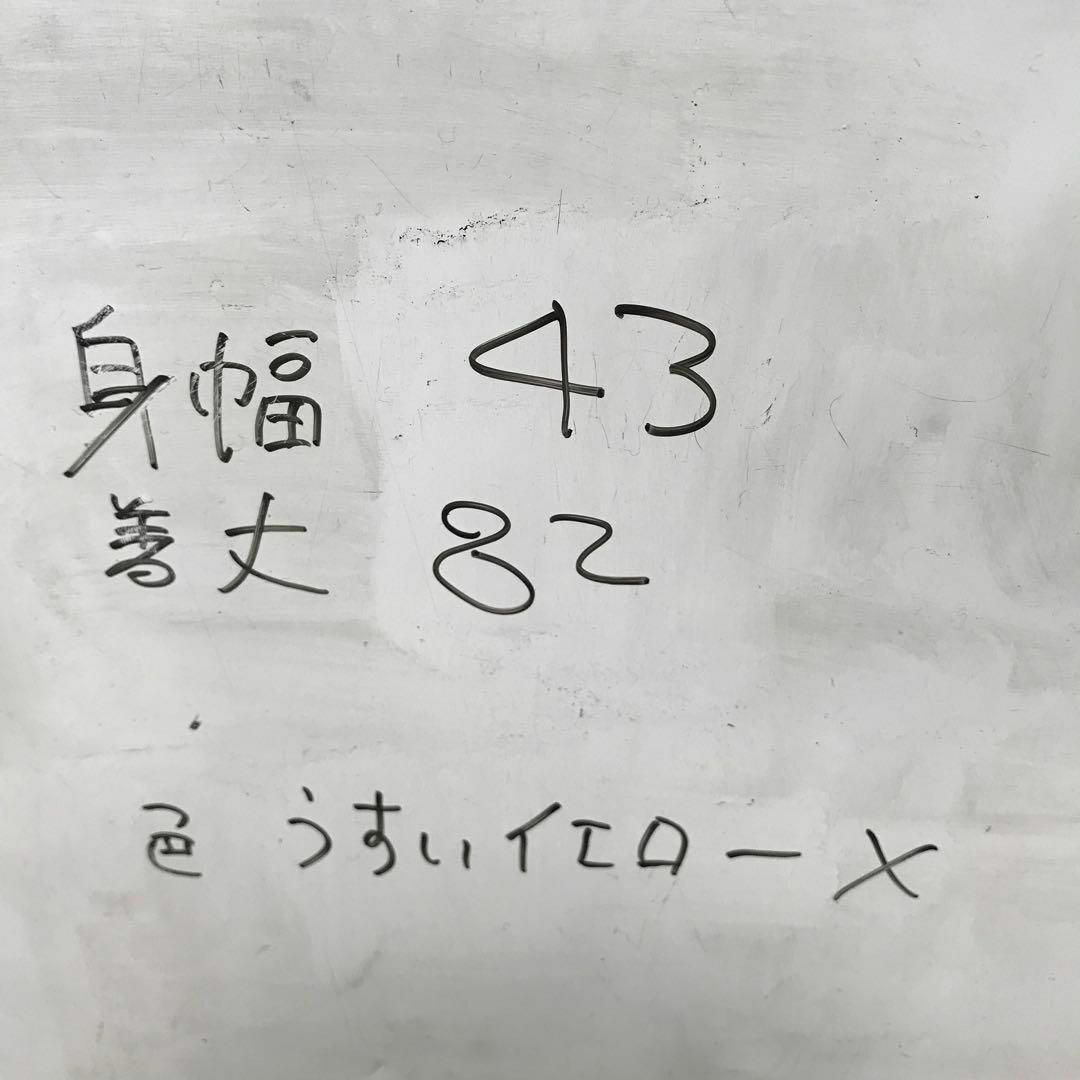 身幅 43
着丈 82
色 うすいイエロー ×